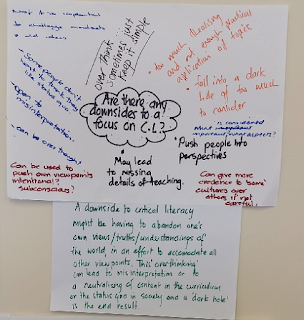 to challenge mindsets
and ideas
- Some people don't
want to think
like status quo
- Open to
misinterpretation
- can be over thought
Can be used to
push own viewpoints
intentional?
subconscious?
over think
sometimes just
keep it simple
Are there any
downsides to a
focus on C.L?
• May lead
to missing
details of teaching.
• too much theorising
and not enough practical
application of topics
• fall into a dark
hole of too much
to consider
is considered
important/more
• Push people into
perspectives
Can give more
credence to 'some'
cultures over
others if not
careful.
A downside to critical literacy
might be having to abandon one's
own views/truths/understandings of
the world, in an effort to accomodate all
other viewpoints. This 'overthinking'
can lead to misinterpretation or to
a neutralising of content in the curriculum
or the status quo in society and a 'dark hole'
is the end result